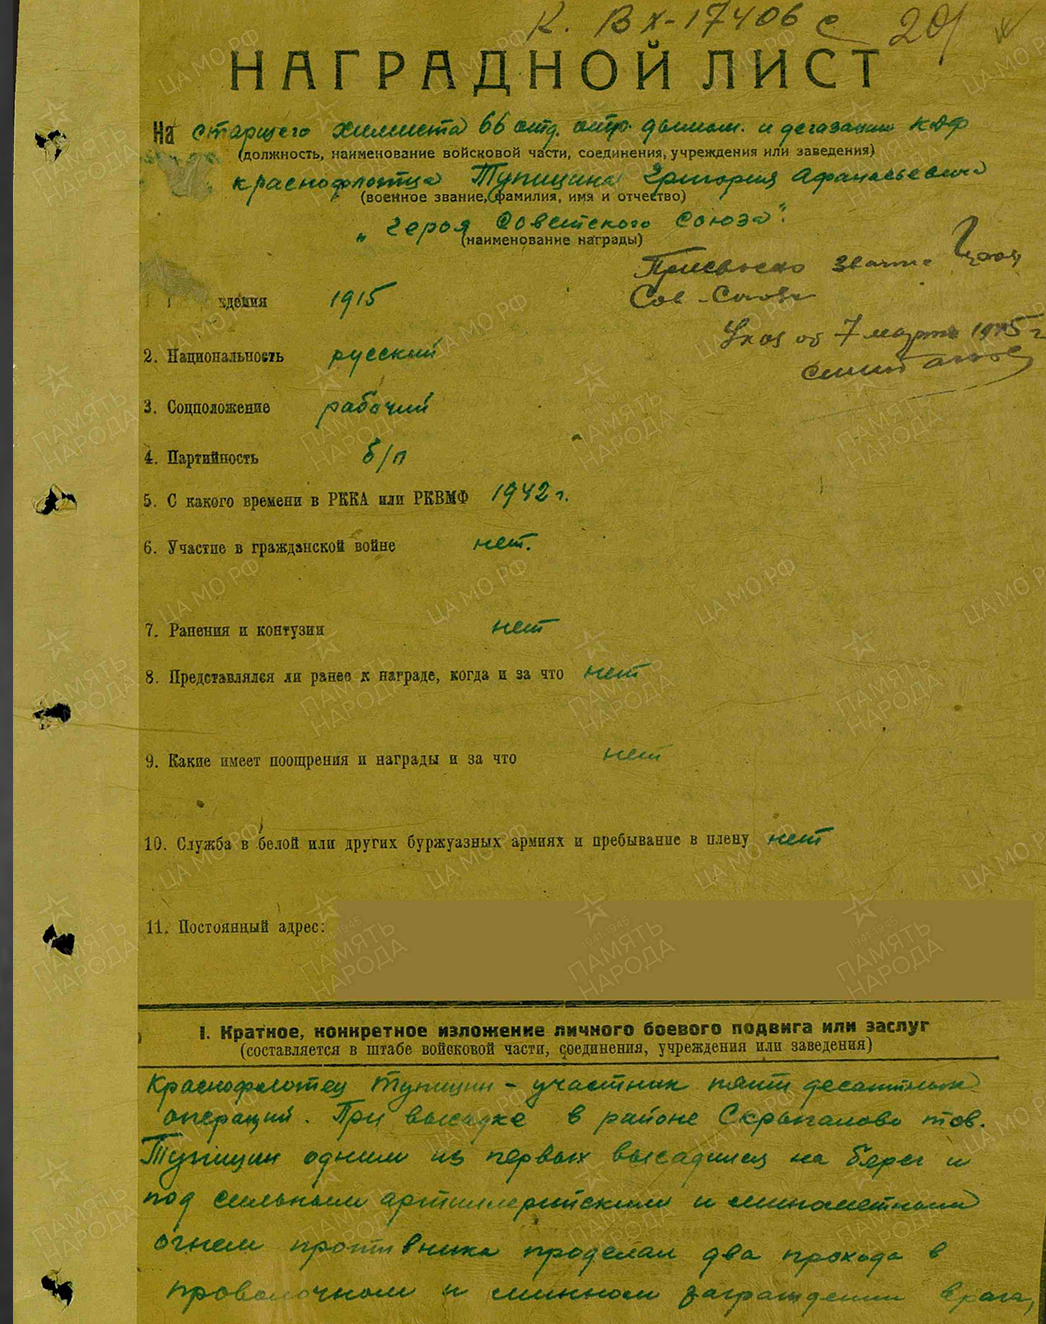 К. Вх-17406 с 20/
НАГРАДНОЙ ЛИСТ
На старшего химика 66 отд. отр. дымом. и дегазации КДФ
(должность, наименование войсковой части, соединения, учреждения или заведения)
краснофлотца Тупицина Григория Афанасьевича
(военное звание, фамилия, имя и отчество)
„Героя Советского Союза“.
(наименование награды)
Присвоено звание Героя
Сов-Союза
Указ от 7 марта 1945 г
ждения 1915
2. Национальность русский
3. Соцположение рабочий
4. Партийность б/п
5. С какого времени в РККА или РКВМФ 1942 г.
6. Участие в гражданской войне нет.
7. Ранения и контузии нет
8. Представлялся ли ранее к награде, когда и за что нет
9. Какие имеет поощрения и награды и за что нет
10. Служба в белой или других буржуазных армиях и пребывание в плену нет
11. Постоянный адрес:
I. Краткое, конкретное изложение личного боевого подвига или заслуг
(составляется в штабе войсковой части, соединения, учреждения или заведения)
Краснофлотец Тупицин - участник пяти десантных
операций. При высадке в районе Скрыгалово тов.
Тупицин одним из первых высадился на берег и
под сильным артиллерийским и минометным
огнем противника проделал два прохода в
проволочном и минном заграждении врага,
ПАМЯТЬ НАРОДА
ЦА МО РФ